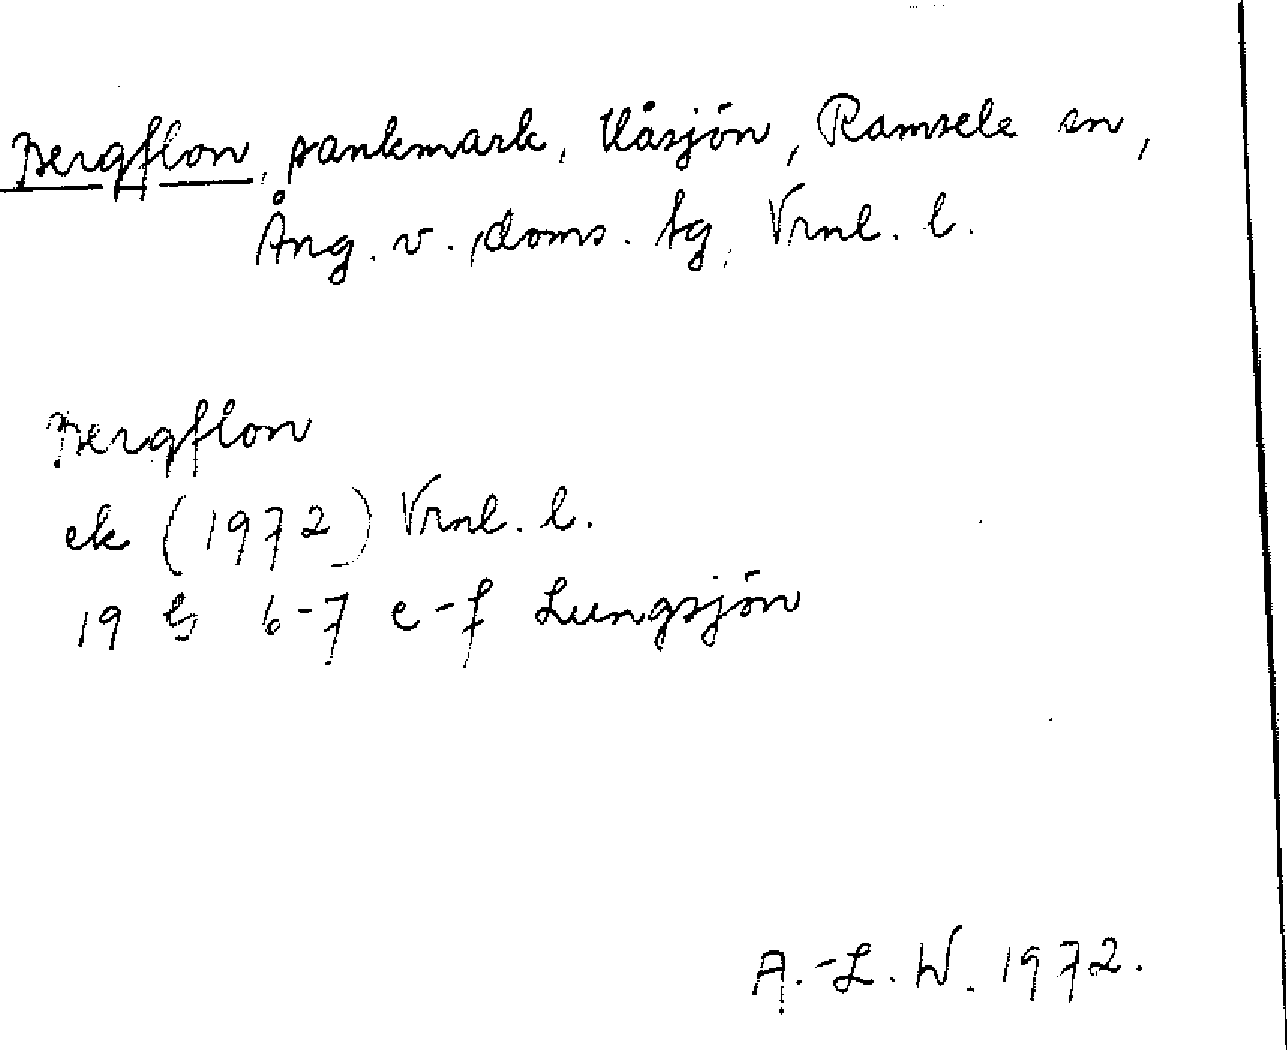 Bergflon, sankmark, Våsjön, Ramsele sn,
Ång. v. doms. tg, Vrnl. l.
Bergflon
ek (1972) Vrnl. l.
19 G 6-7 e-f Lungsjön
A.-L. W. 1972.